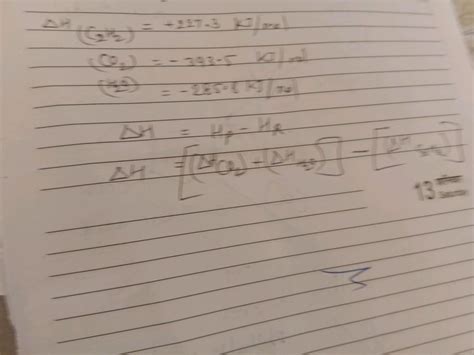 ΔH (C₂H₂) = +227.3 KJ/mol
(CO₂) = -393.5 KJ/mol
(H₂O) = -285.8 KJ/mol
ΔH = Hp - HR
ΔH = [(ΔH CO₂) + (ΔH H₂O)] - [(ΔH
13